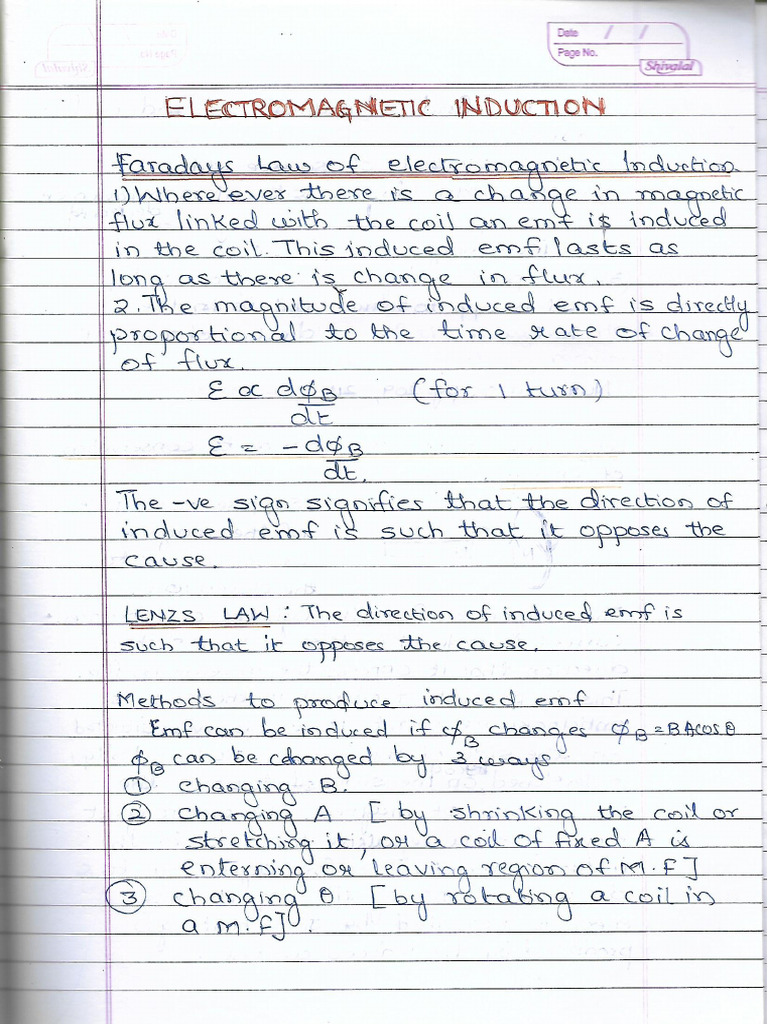 Date / /
Page No.
Shivalal
ELECTROMAGNETIC INDUCTION
Faradays Law of electromagnetic Induction
1) Where ever there is a change in magnetic
flux linked with the coil an emf is induced
in the coil. This induced emf lasts as
long as there is change in flux.
2. The magnitude of induced emf is directly
proportional to the time rate of change
of flux.
ε ∝ dϕB (for 1 turn)
dt
ε = -dϕB
dt.
The -ve sign signifies that the direction of
induced emf is such that it opposes the
cause.
LENZS LAW : The direction of induced emf is
such that it opposes the cause.
Methods to produce induced emf
Emf can be induced if ϕB changes ϕB = BAcosθ
ϕB can be changed by 3 ways
① changing B.
② changing A [ by shrinking the coil or
stretching it, or a coil of fixed A is
enterning or leaving region of M.F]
③ changing θ [by rotating a coil in
a M.F].